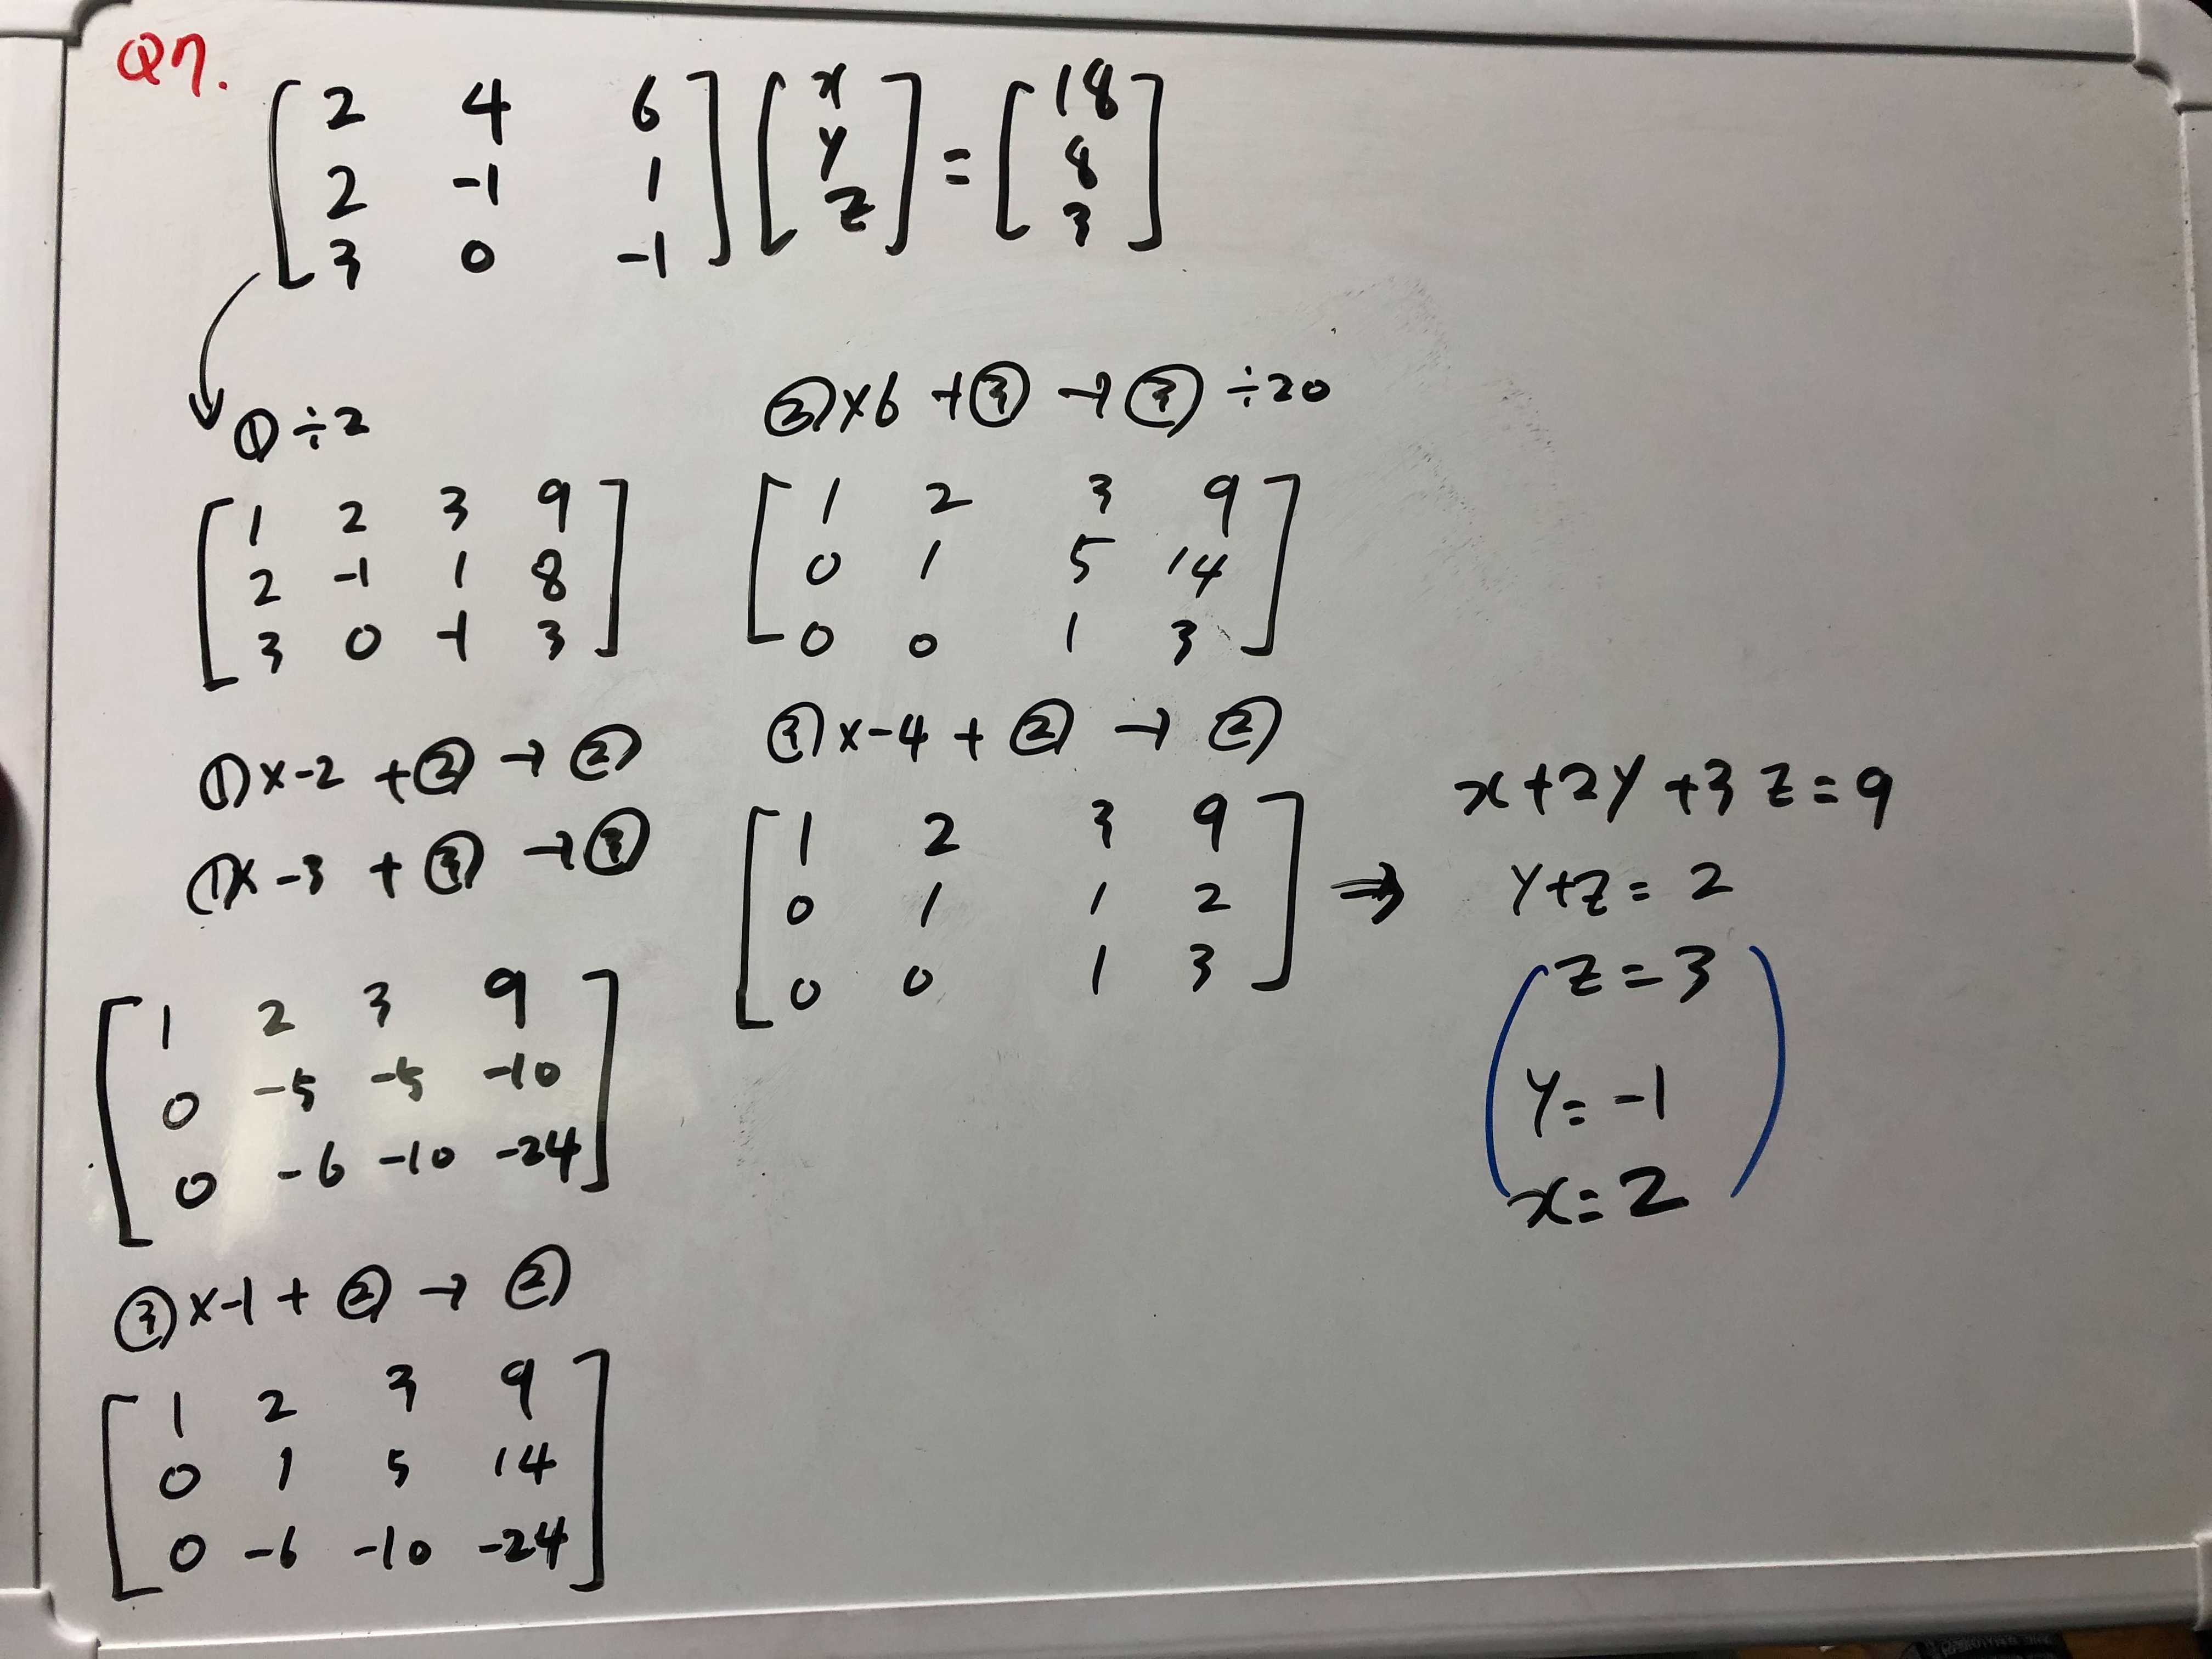 Q7.
[2 4 6] [x] = [18]
[2 -1 1] [y] [8]
[3 0 -1] [z] [3]
① ÷2
[1 2 3 9]
[2 -1 1 8]
[3 0 -1 3]
①×-2 +② → ②
①×-3 + ③ → ③
[1 2 3 9]
[0 -5 -5 -10]
[0 -6 -10 -24]
③×-1 + ② → ②
[1 2 3 9]
[0 1 5 14]
[0 -6 -10 -24]
②×6 +③ → ③ ÷20
[1 2 3 9]
[0 1 5 14]
[0 0 1 3]
③×-4 + ② → ②
[1 2 3 9]
[0 1 1 2]
[0 0 1 3]
⇒
x+2y+3z=9
y+z=2
z=3
y=-1
x=2